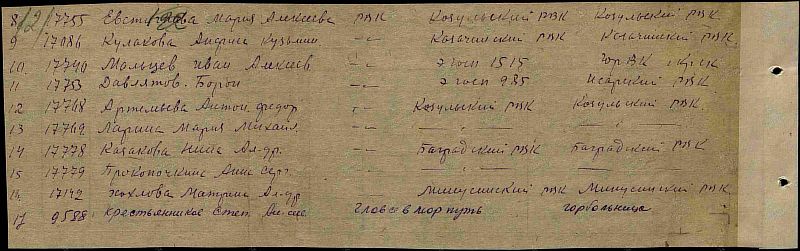 8 17755 Евстигнеева Мария Алексеевна РВК Козульский РВК Козульский РВК
9 17086 Кулакова Андриа Кузьмин -"- Казачинский РВК Казачинский РВК
10 17740 Мальцев Иван Алексеев -"- эгосп 1515
11 17753 Давлятов Борои -"- эгосп 985 РВК
12 17768 Артемьева Антон. Федор -"- Козульский РВК Козульский РВК
13 17769 Ларина Мария Михаил. -"- -"- -"-
14 17778 Казакова Нина Ал-др. -"- Баградский РВК Баградский РВК
15 17779 Прокопочкина Анна Серг. -"- -"- -"-
16 17142 Хохлова Матрина Ал-др Минусинский РВК Минусинский РВК
17 9588 Крестьянников Степ. Главсевморпуть горбольница